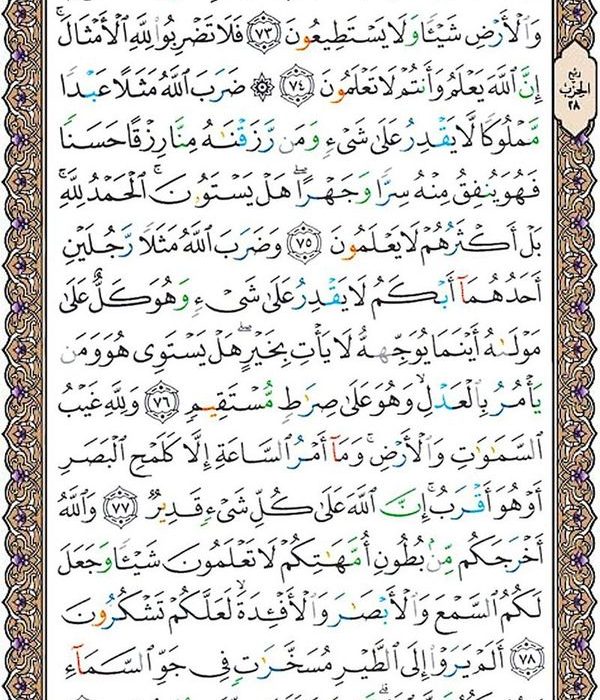 وَٱلْأَرْضِ شَيْـًٔا وَلَا يَسْتَطِيعُونَ ٧٣ فَلَا تَضْرِبُوا۟ لِلَّهِ ٱلْأَمْثَالَ ۚ
إِنَّ ٱللَّهَ يَعْلَمُ وَأَنتُمْ لَا تَعْلَمُونَ ٧٤ ۞ ضَرَبَ ٱللَّهُ مَثَلًا عَبْدًا
مَّمْلُوكًا لَّا يَقْدِرُ عَلَىٰ شَىْءٍ وَمَن رَّزَقْنَـٰهُ مِنَّا رِزْقًا حَسَنًا
فَهُوَ يُنفِقُ مِنْهُ سِرًّا وَجَهْرًا ۖ هَلْ يَسْتَوُۥنَ ۚ ٱلْحَمْدُ لِلَّهِ ۚ
بَلْ أَكْثَرُهُمْ لَا يَعْلَمُونَ ٧٥ وَضَرَبَ ٱللَّهُ مَثَلًا رَّجُلَيْنِ
أَحَدُهُمَآ أَبْكَمُ لَا يَقْدِرُ عَلَىٰ شَىْءٍ وَهُوَ كَلٌّ عَلَىٰ
مَوْلَىٰهُ أَيْنَمَا يُوَجِّههُّ لَا يَأْتِ بِخَيْرٍ ۖ هَلْ يَسْتَوِى هُوَ وَمَن
يَأْمُرُ بِٱلْعَدْلِ ۙ وَهُوَ عَلَىٰ صِرَٰطٍ مُّسْتَقِيمٍ ٧٦ وَلِلَّهِ غَيْبُ
ٱلسَّمَـٰوَٰتِ وَٱلْأَرْضِ ۚ وَمَآ أَمْرُ ٱلسَّاعَةِ إِلَّا كَلَمْحِ ٱلْبَصَرِ
أَوْ هُوَ أَقْرَبُ ۚ إِنَّ ٱللَّهَ عَلَىٰ كُلِّ شَىْءٍ قَدِيرٌ ٧٧ وَٱللَّهُ
أَخْرَجَكُم مِّنۢ بُطُونِ أُمَّهَـٰتِكُمْ لَا تَعْلَمُونَ شَيْـًٔا وَجَعَلَ
لَكُمُ ٱلسَّمْعَ وَٱلْأَبْصَـٰرَ وَٱلْأَفْـِٔدَةَ ۙ لَعَلَّكُمْ تَشْكُرُونَ
٧٨ أَلَمْ يَرَوْا۟ إِلَى ٱلطَّيْرِ مُسَخَّرَٰتٍ فِى جَوِّ ٱلسَّمَآءِ
ربع
الحزب
٢٨